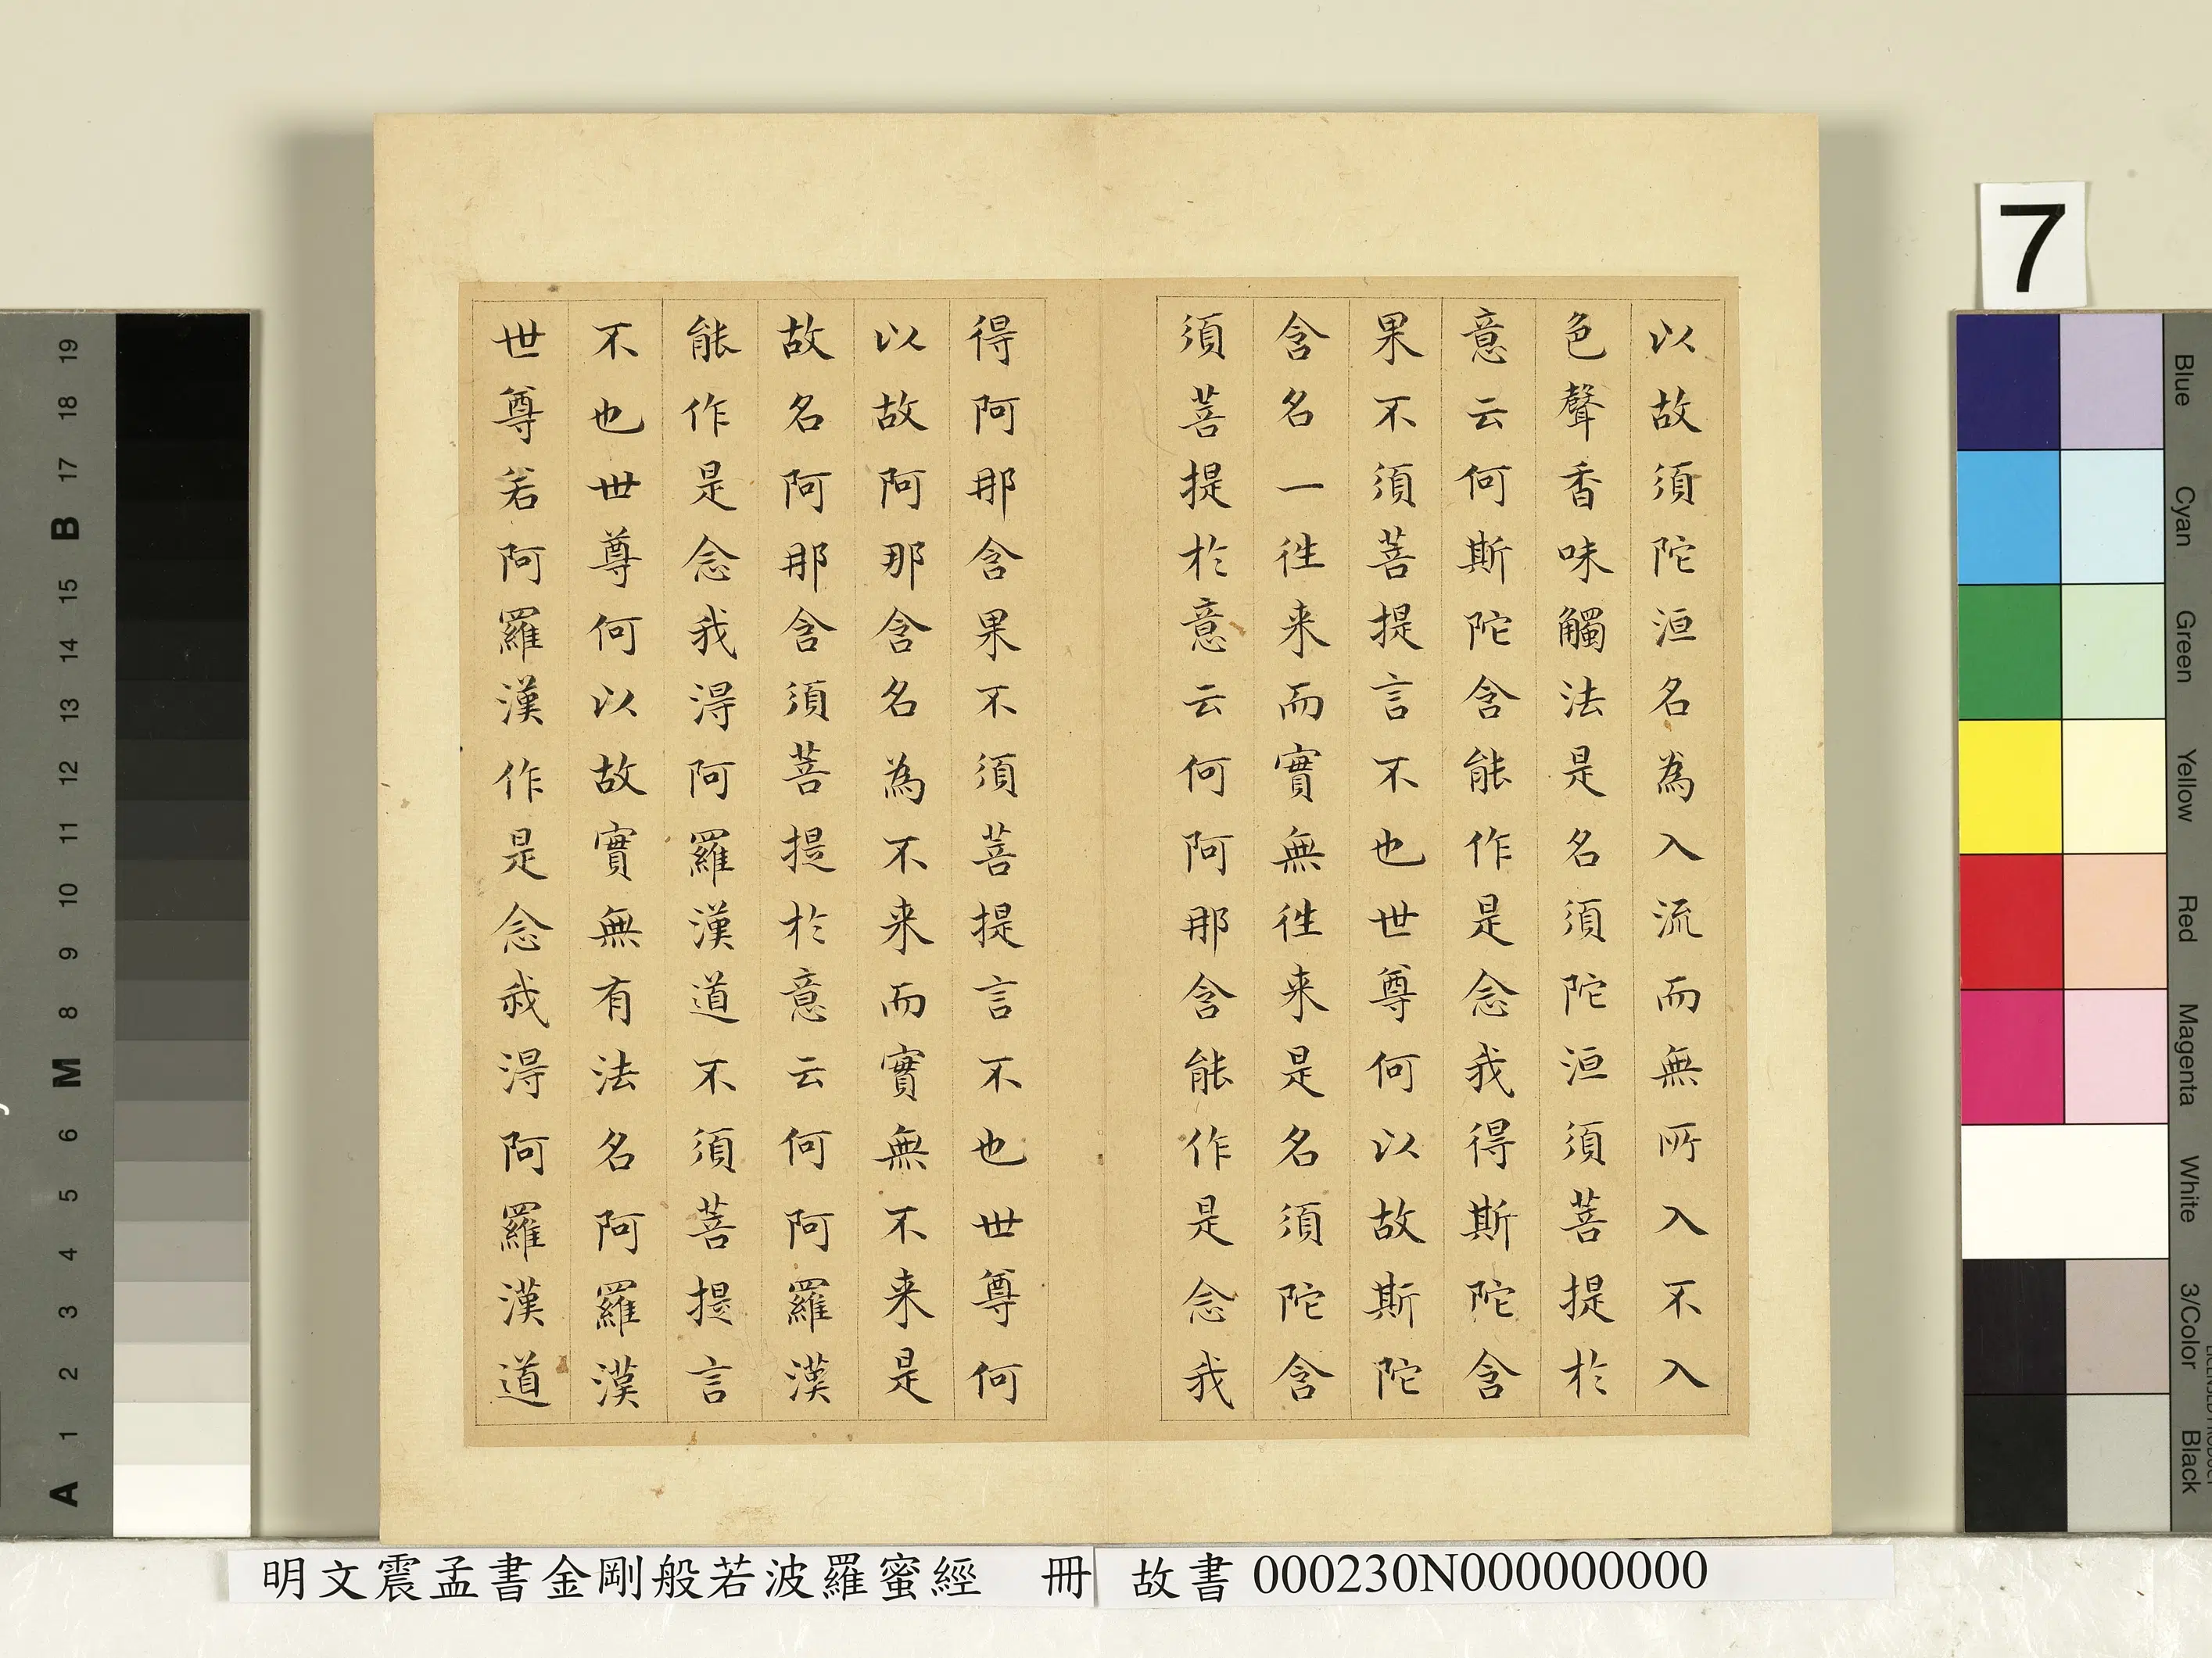 以故須陀洹名為入流而無所入不入
色聲香味觸法是名須陀洹須菩提於
意云何斯陀含能作是念我得斯陀含
果不須菩提言不也世尊何以故斯陀
含名一徃来而實無徃来是名須陀含
須菩提於意云何阿那含能作是念我
得阿那含果不須菩提言不也世尊何
以故阿那含名為不来而實無不来是
故名阿那含須菩提於意云何阿羅漢
能作是念我得阿羅漢道不須菩提言
不也世尊何以故實無有法名阿羅漢
世尊若阿羅漢作是念我得阿羅漢道
明文震孟書金剛般若波羅蜜經 冊
故書 000230N000000000
7
Blue
Cyan
Green
Yellow
Red
Magenta
White
3/Color
Black
A 1 2 3 4 5 6 M 8 9 10 11 12 13 14 15 B 17 18 19